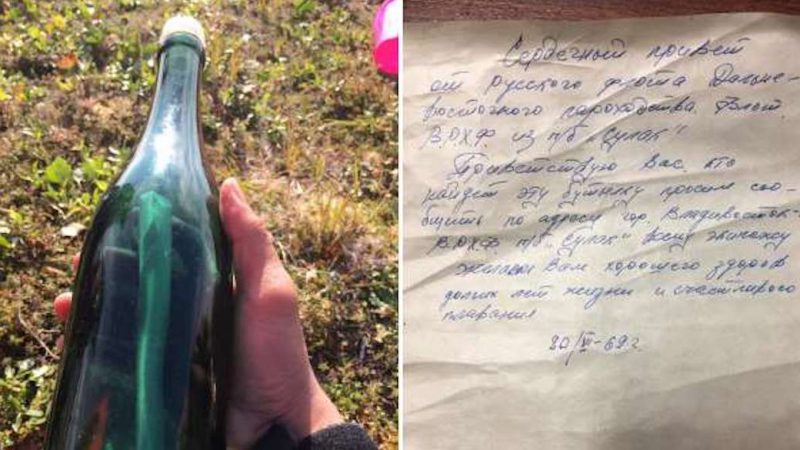 Сердечный привет
от русского флота Дальне-
восточного пароходства. Флот
ВРХФ из п/б „Сулак"
Приветствую Вас, кто
найдет эту бутылку просим соо-
бщить по адресу гор. Владивосток-
ВРХФ п/б „Сулак" всему экипажу
желаем Вам хорошего здоров
долгих лет жизни и счастливого
плавания
20/VI-69г